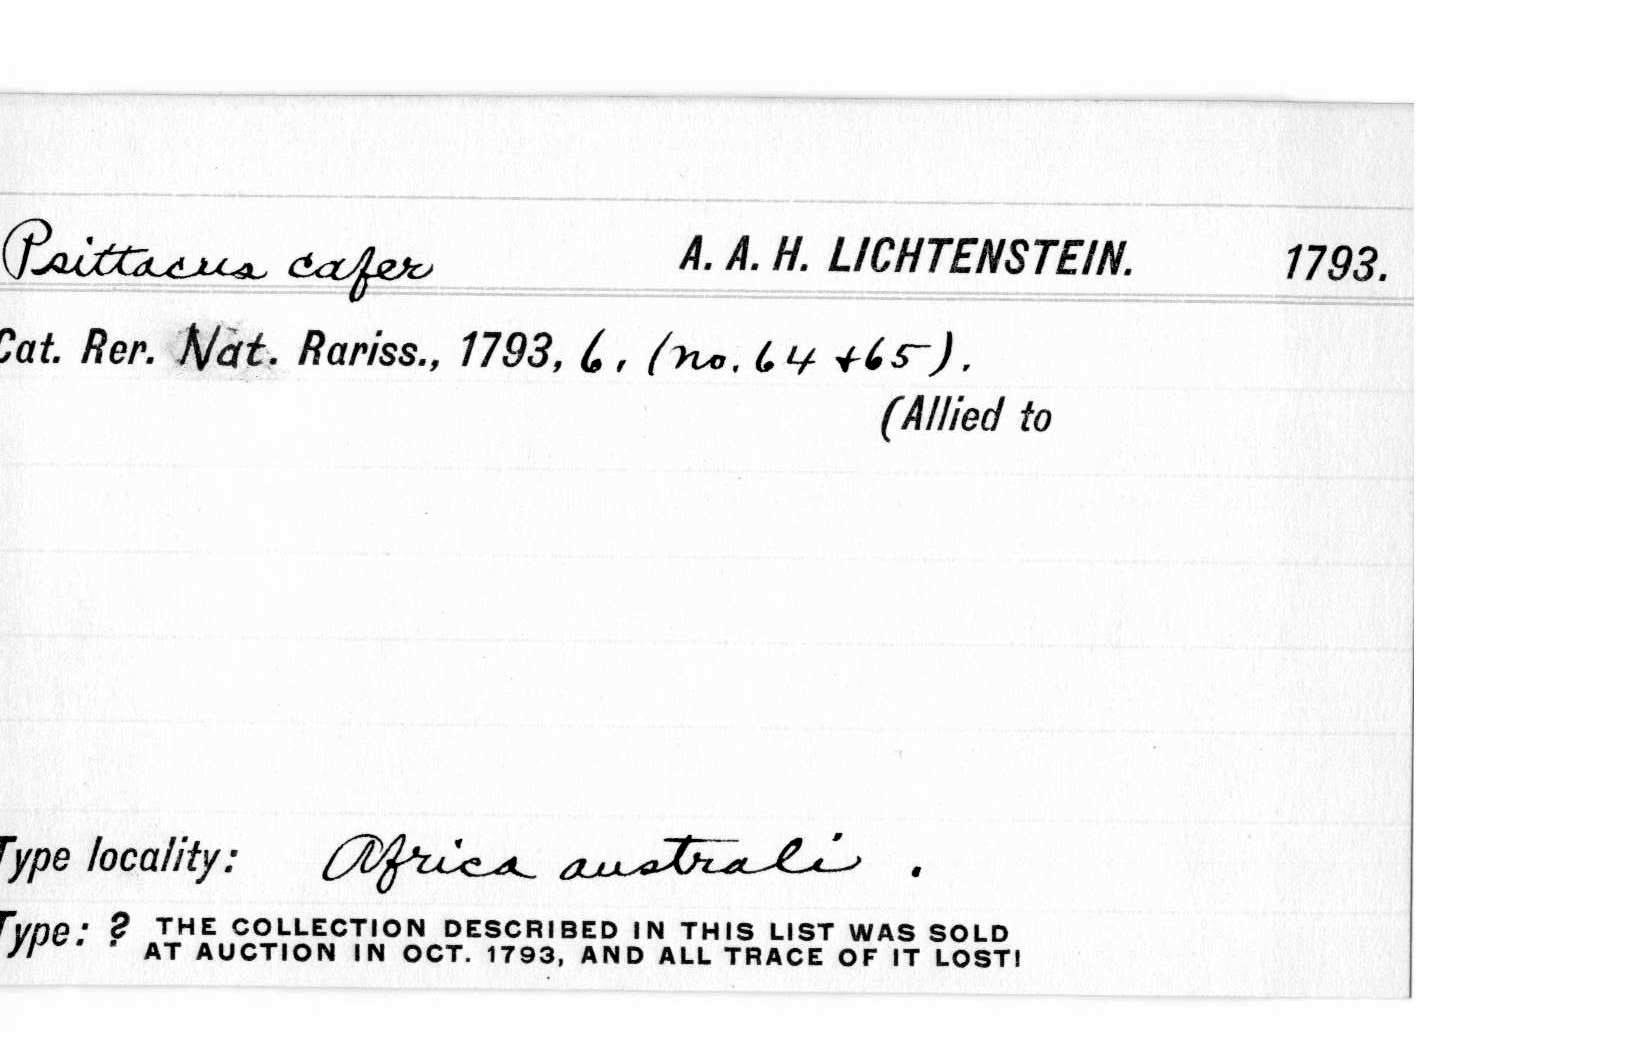 Psittacus cafer A. A. H. LICHTENSTEIN. 1793.
Cat. Rer. Nat. Rariss., 1793, 6, (no. 64 + 65).
(Allied to
Type locality: Africa australi .
Type: ? THE COLLECTION DESCRIBED IN THIS LIST WAS SOLD
AT AUCTION IN OCT. 1793, AND ALL TRACE OF IT LOST!